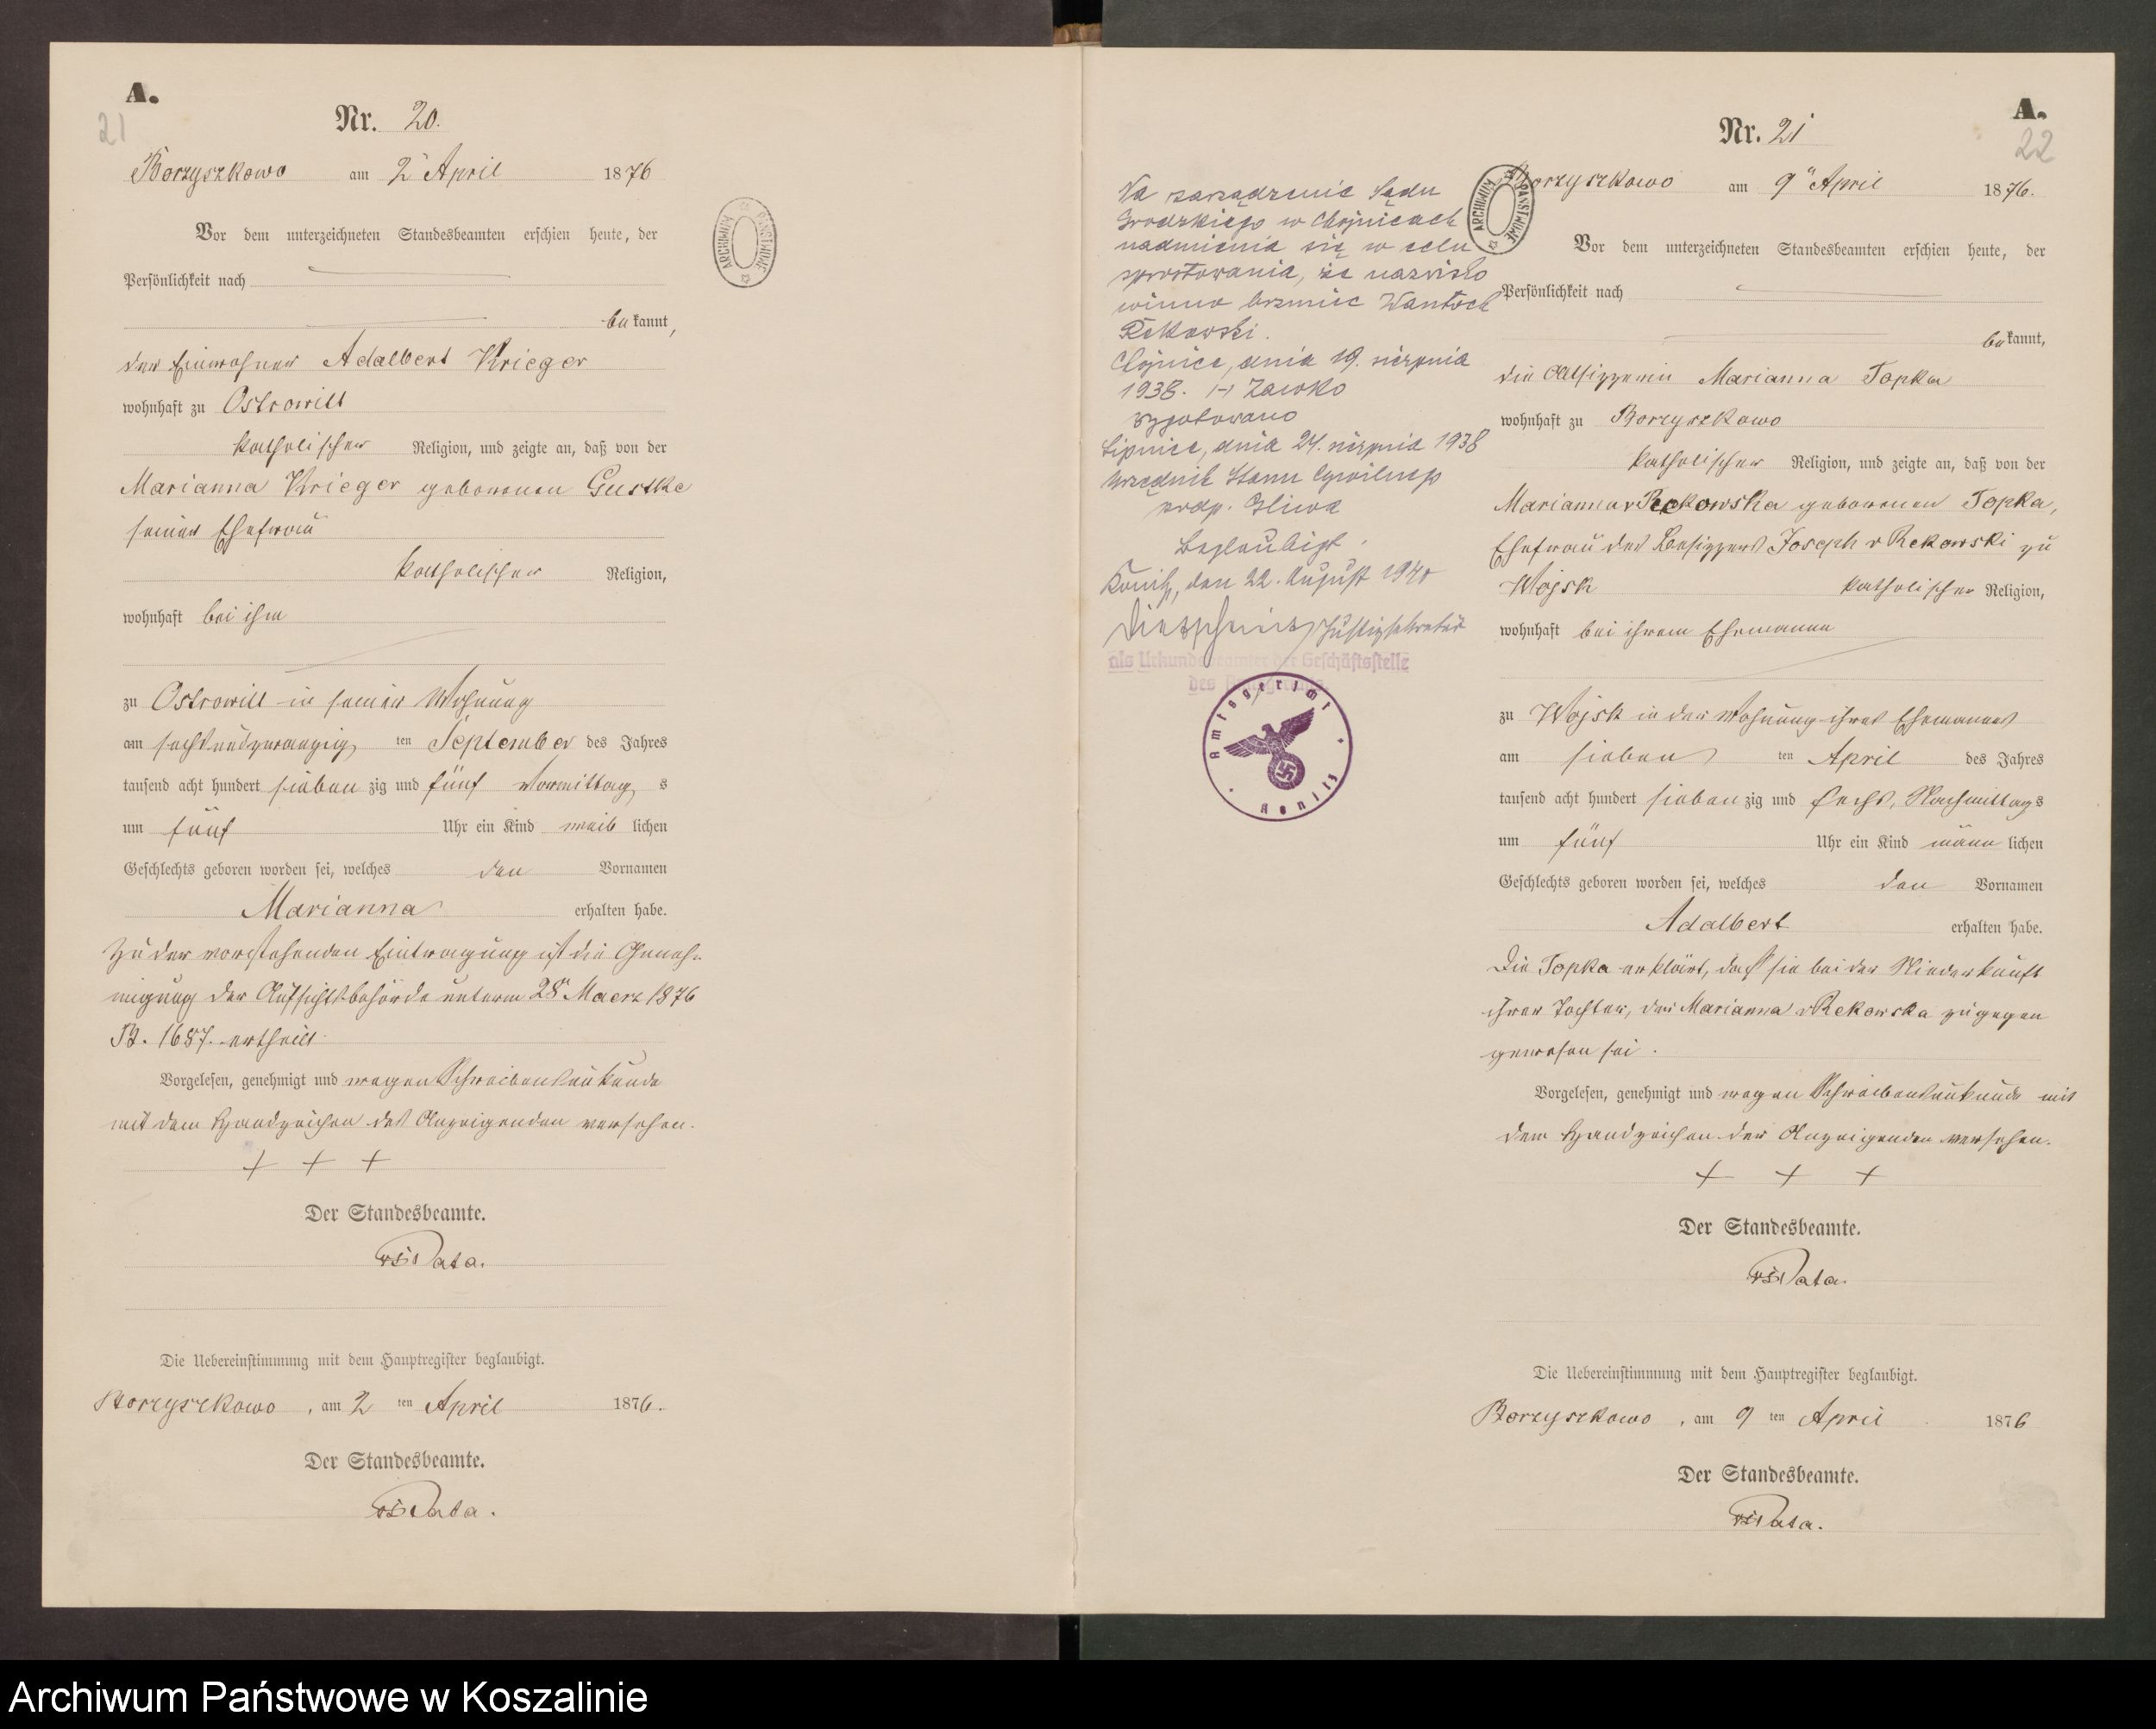 A.
21
Nr. 20.
Borzyszkowo am 2ᵗ April 1876
Vor dem unterzeichneten Standesbeamten erschien heute, der
Persönlichkeit nach
bekannt,
der Einwohner Adalbert Krieger
wohnhaft zu Ostrowitt
katholischer Religion, und zeigte an, daß von der
Marianna Krieger geborenen Gustke
seiner Ehefrau
katholischer Religion,
wohnhaft bei ihm
zu Ostrowitt in seiner Wohnung
am sechsundzwanzig ten September des Jahres
tausend acht hundert sieben zig und fünf Vormittag s
um fünf Uhr ein Kind weib lichen
Geschlechts geboren worden sei, welches den Vornamen
Marianna erhalten habe.
Zu der vorstehenden Eintragung ist die Geneh-
migung der Aufsichtsbehörde unterm 28ᵗ Maerz 1876
B. 1687. ertheilt.
Vorgelesen, genehmigt und wegen Schreibensunkunde
mit dem Handzeichen des Anzeigenden versehen.
+ + +
Der Standesbeamte.
Die Uebereinstimmung mit dem Hauptregister beglaubigt.
Borzyszkowo, am 2 ten April 1876.
Der Standesbeamte.
ARCHIWUM PAŃSTWOWE
A.
22
Nr. 21
Borzyszkowo am 9ᵗ April 1876.
Vor dem unterzeichneten Standesbeamten erschien heute, der
Persönlichkeit nach
bekannt,
die Altsitzerin Marianna Topka
wohnhaft zu Borzyszkowo
katholischer Religion, und zeigte an, daß von der
Marianna v Rekowska geborenen Topka,
Ehefrau des Besitzers Joseph v Rekowski zu
Wojsk katholischer Religion,
wohnhaft bei ihrem Ehemanne
zu Wojsk in der Wohnung ihres Ehemannes
am sieben ten April des Jahres
tausend acht hundert sieben zig und sechs, Nachmittags
um fünf Uhr ein Kind männ lichen
Geschlechts geboren worden sei, welches den Vornamen
Adalbert erhalten habe.
Die Topka erklärt, dass sie bei der Niederkunft
ihrer Tochter, der Marianna v Rekowska zugegen
gewesen sei.
Vorgelesen, genehmigt und wegen Schreibensunkunde mit
dem Handzeichen der Anzeigenden versehen.
+ + +
Der Standesbeamte.
Die Uebereinstimmung mit dem Hauptregister beglaubigt.
Borzyszkowo, am 9 ten April 1876
Der Standesbeamte.
ARCHIWUM PAŃSTWOWE
Na zarządzenie Sądu
Grodzkiego w Chojnicach
nadmienia się w celu
sprostowania, że nazwisko
winno brzmieć Wantoch
Rekowski.
Chojnice, dnia 19. sierpnia
1938. (-) Zawko
wygotowano
Lipnice, dnia 24. sierpnia 1938
Urzędnik Stanu Cywilnego
podp. Gliwa
Beglaubigt.
Konitz, den 22. August 1940
Justizsekretär
als Urkundsbeamter der Geschäftsstelle
des Amtsgerichts
Amtsgericht
Konitz
Archiwum Państwowe w Koszalinie